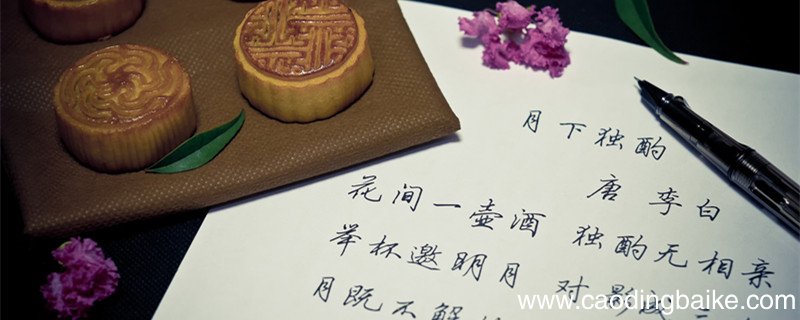 月下独酌
唐 李白
花间一壶酒 独酌无相亲
举杯邀明月 对影成
月既不解
www.caodingbaike.com